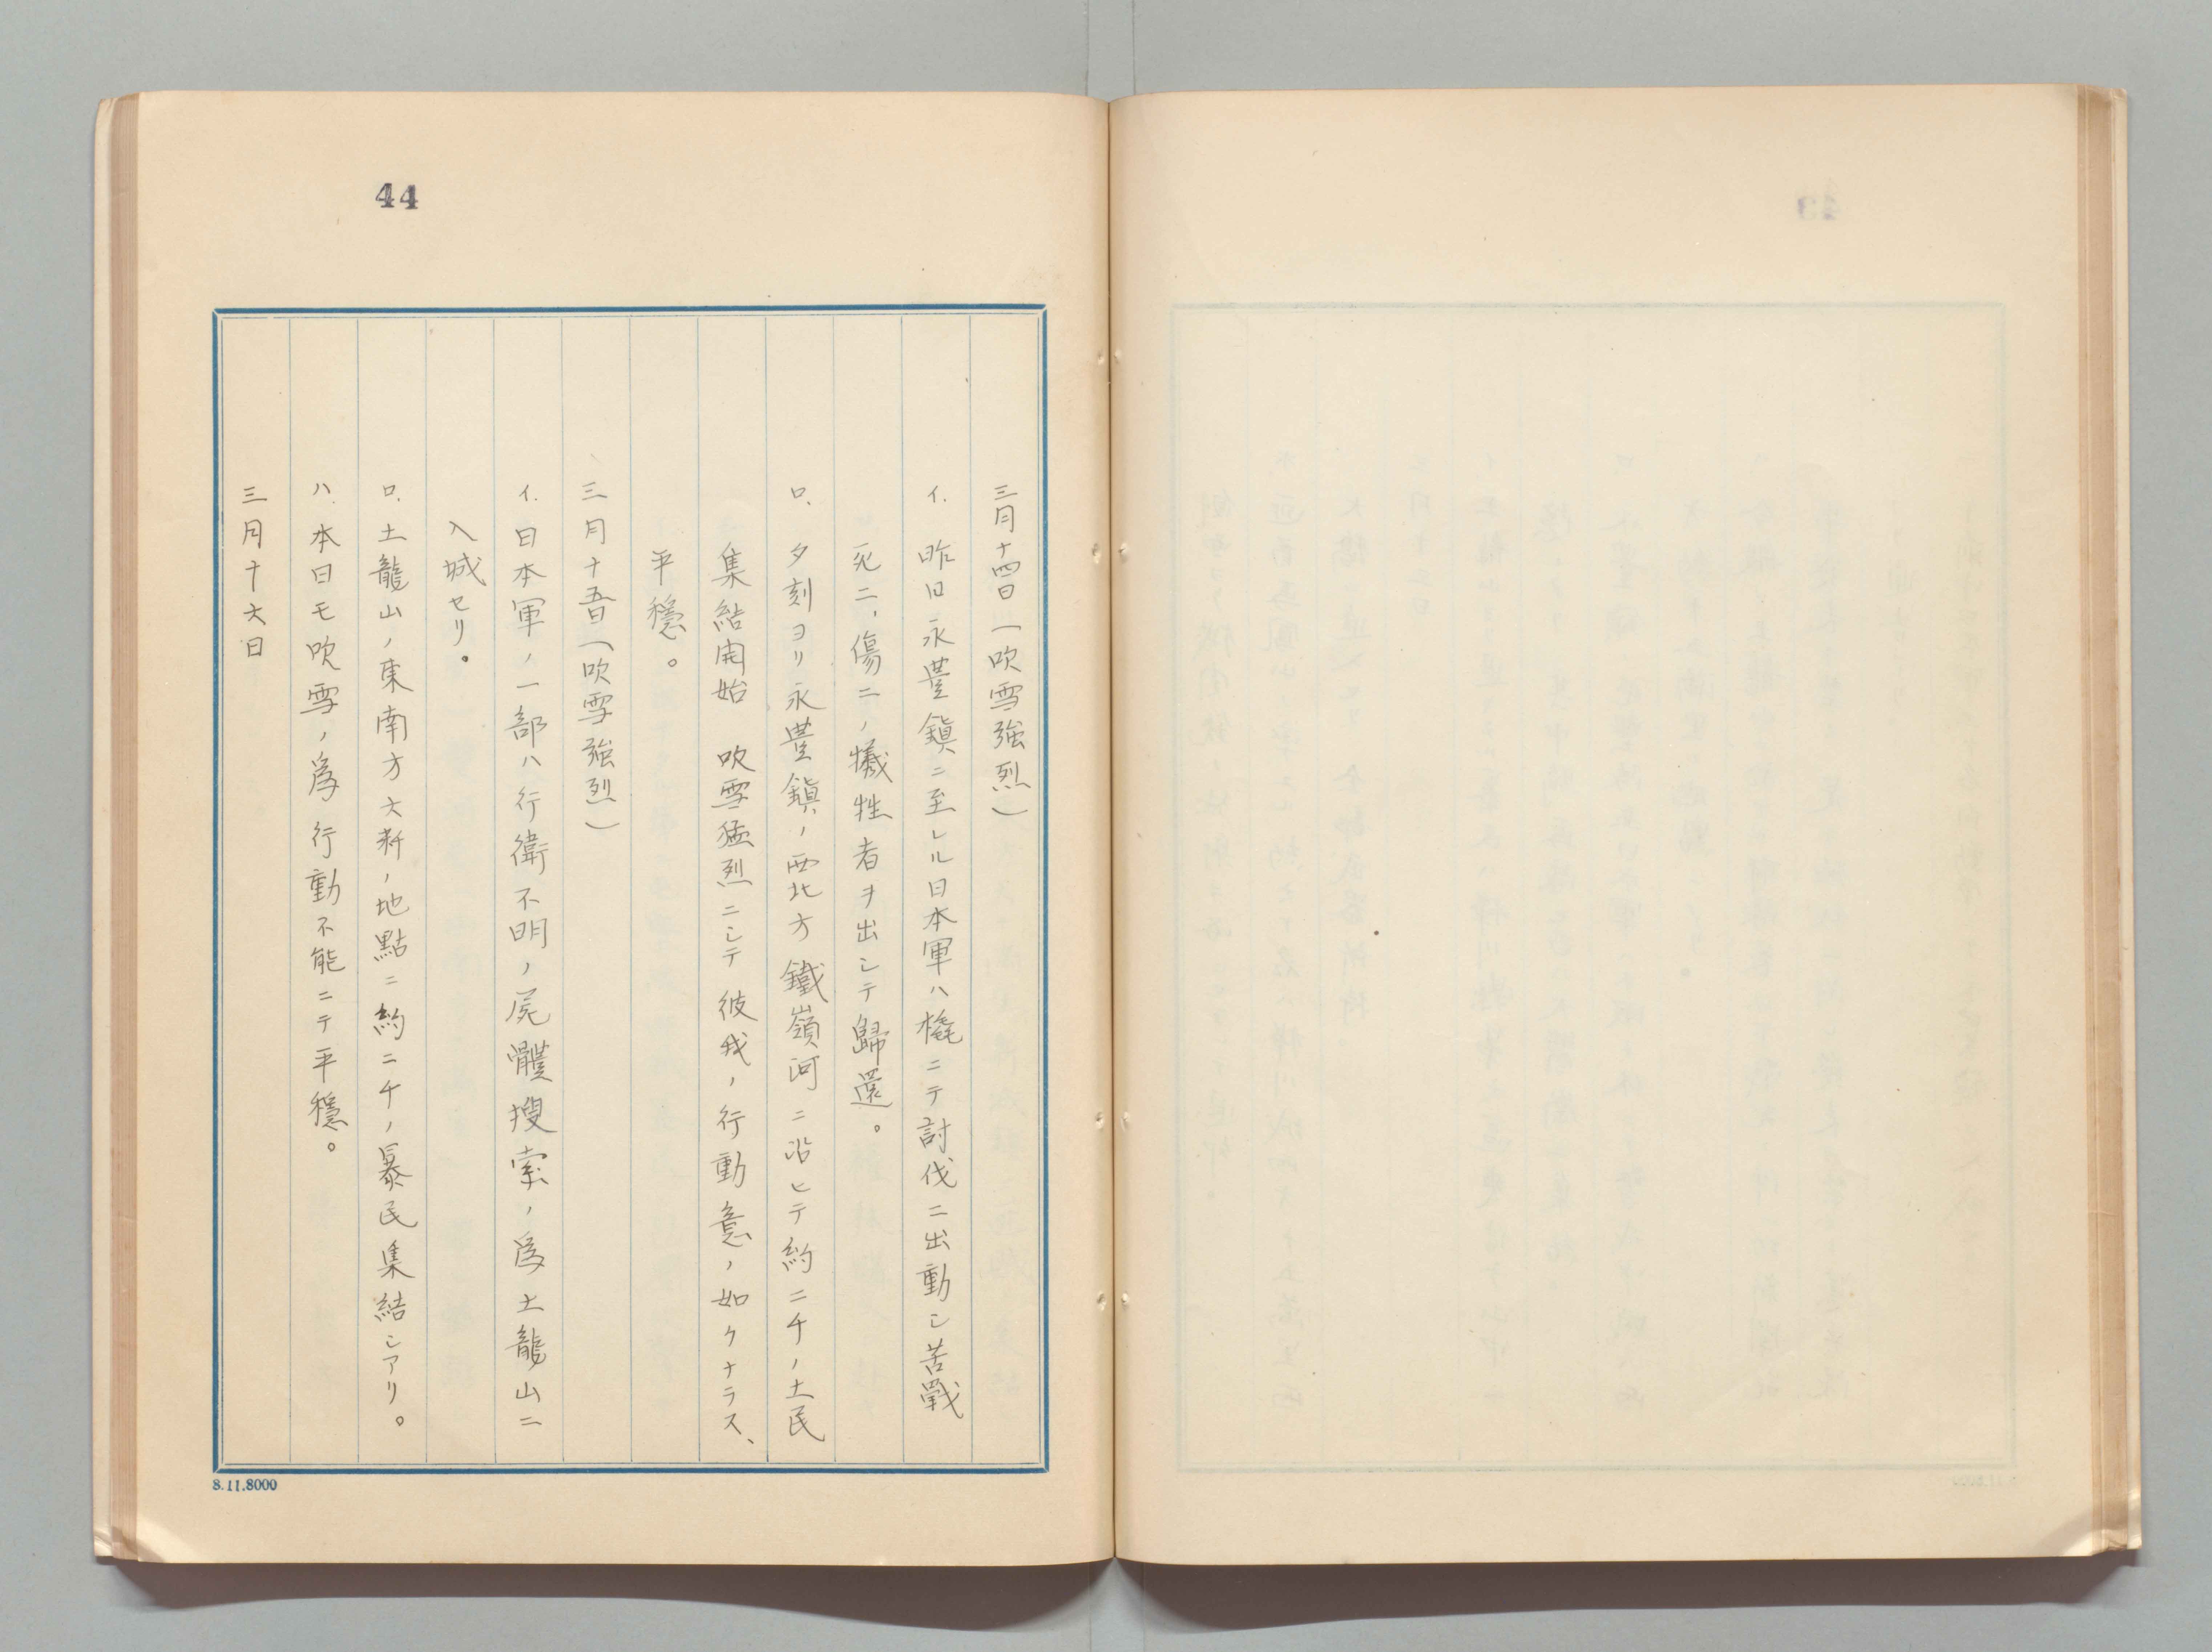 44
三月十四日(吹雪強烈)
イ.昨日永豊鎮ニ至レル日本軍ハ橇ニテ討伐ニ出動シ苦戰
死二、傷二ノ犠牲者ヲ出シテ歸還。
ロ.夕刻ヨリ永豊鎮ノ西北方鐵嶺河ニ沿ヒテ約二千ノ土民
集結開始 吹雪猛烈ニシテ彼我ノ行動意ノ如クナラス、
平穩。
三月十五日(吹雪強烈)
イ.日本軍ノ一部ハ行衛不明ノ屍體搜索ノ爲土龍山ニ
入城セリ。
ロ.土龍山ノ東南方六粁ノ地點ニ約二千ノ暴民集結シアリ。
ハ.本日モ吹雪ノ爲行動不能ニテ平穩。
三月十六日
8.11.8000